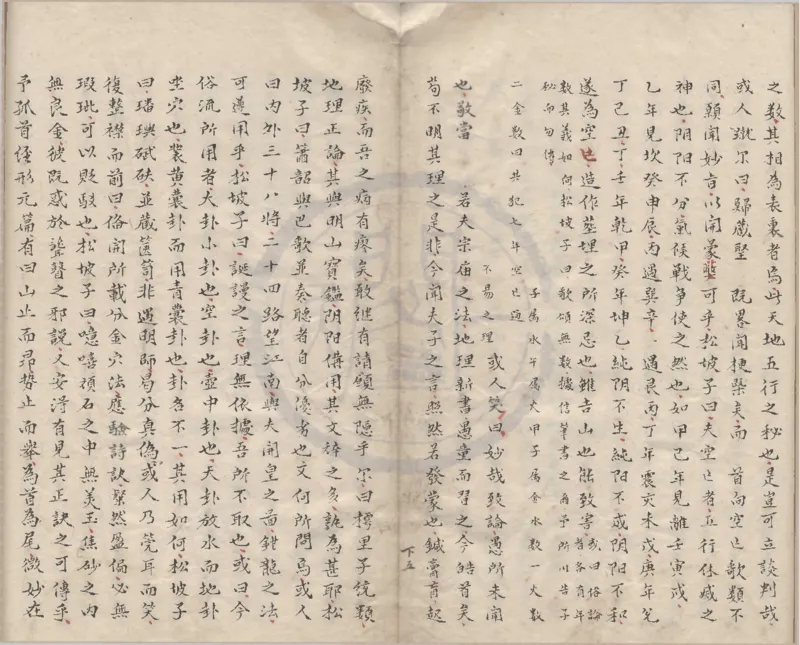 之數其相為表裏者焉此天地五行之秘也是豈可立談判哉
或人蹴尔曰歸藏墍既畧聞梗槩矣而首句空亡歌類不
同願聞妙旨以開蒙蔽可乎松坡子曰夫空亡者五行休咸之
神也阴阳不分氣候戰争使之然也如甲己年見離壬寅戌
乙年見坎癸申辰丙遇巽辛遇艮丙丁年震亥未戊庚年兌
丁己丑丁壬年乾甲癸年坤乙純阴不生純阳不成阴阳不和
遂為空亡造作塟埋之所深忌也雖吉山也能致害或曰俗論
數其義如何松坡子曰歌頌無数據信筆書之再予所以告子
秘向旬傳
二金数曰共犯七年空亡過
子属水午属火甲子属金水数一火数
也敬當若夫宗庙之法地理新書愚童而習之今皓首矣
不易之理或人笑曰妙哉致論愚所未聞
苟不明其理之是非今聞夫子之言熙然若發蒙也鍼膏肓起
下五
廢疾而吾之病有瘳矣敢継有請願無隠乎尔曰摴里子統類
地理正論其與明山寶鑑阴阳備用其文粹之多孰為甚耶松
坡子曰簫韶與巴歌並奏聴者自分優劣也又何所問焉或人
曰内外三十八將二十四路望江南與夫開皇之苗鉗龍之法
可遵用乎松坡子曰誕謾之言理無依據吾所不取也或曰今
俗流所用者大卦小卦也空卦也壷中卦也天卦放水而地卦
坐穴也裳黄囊卦而用青囊卦也卦各不一其用如何松坡子
曰璠璵碔砆並藏篋笥非遇明師曷分真偽或人乃莞耳而笑
復整襟而前曰俻聞所載分金穴法應驗詩訣粲然盈偈必無
瑕玼可以貶駁也松坡子曰噫嘻頑石之中無美玉焦砂之内
無良金彼既或於聾瞽之邪説人安淂有見其正訣之可傳乎
予孤首經形元篇有曰山止而昂势止而舉為首為尾微妙在